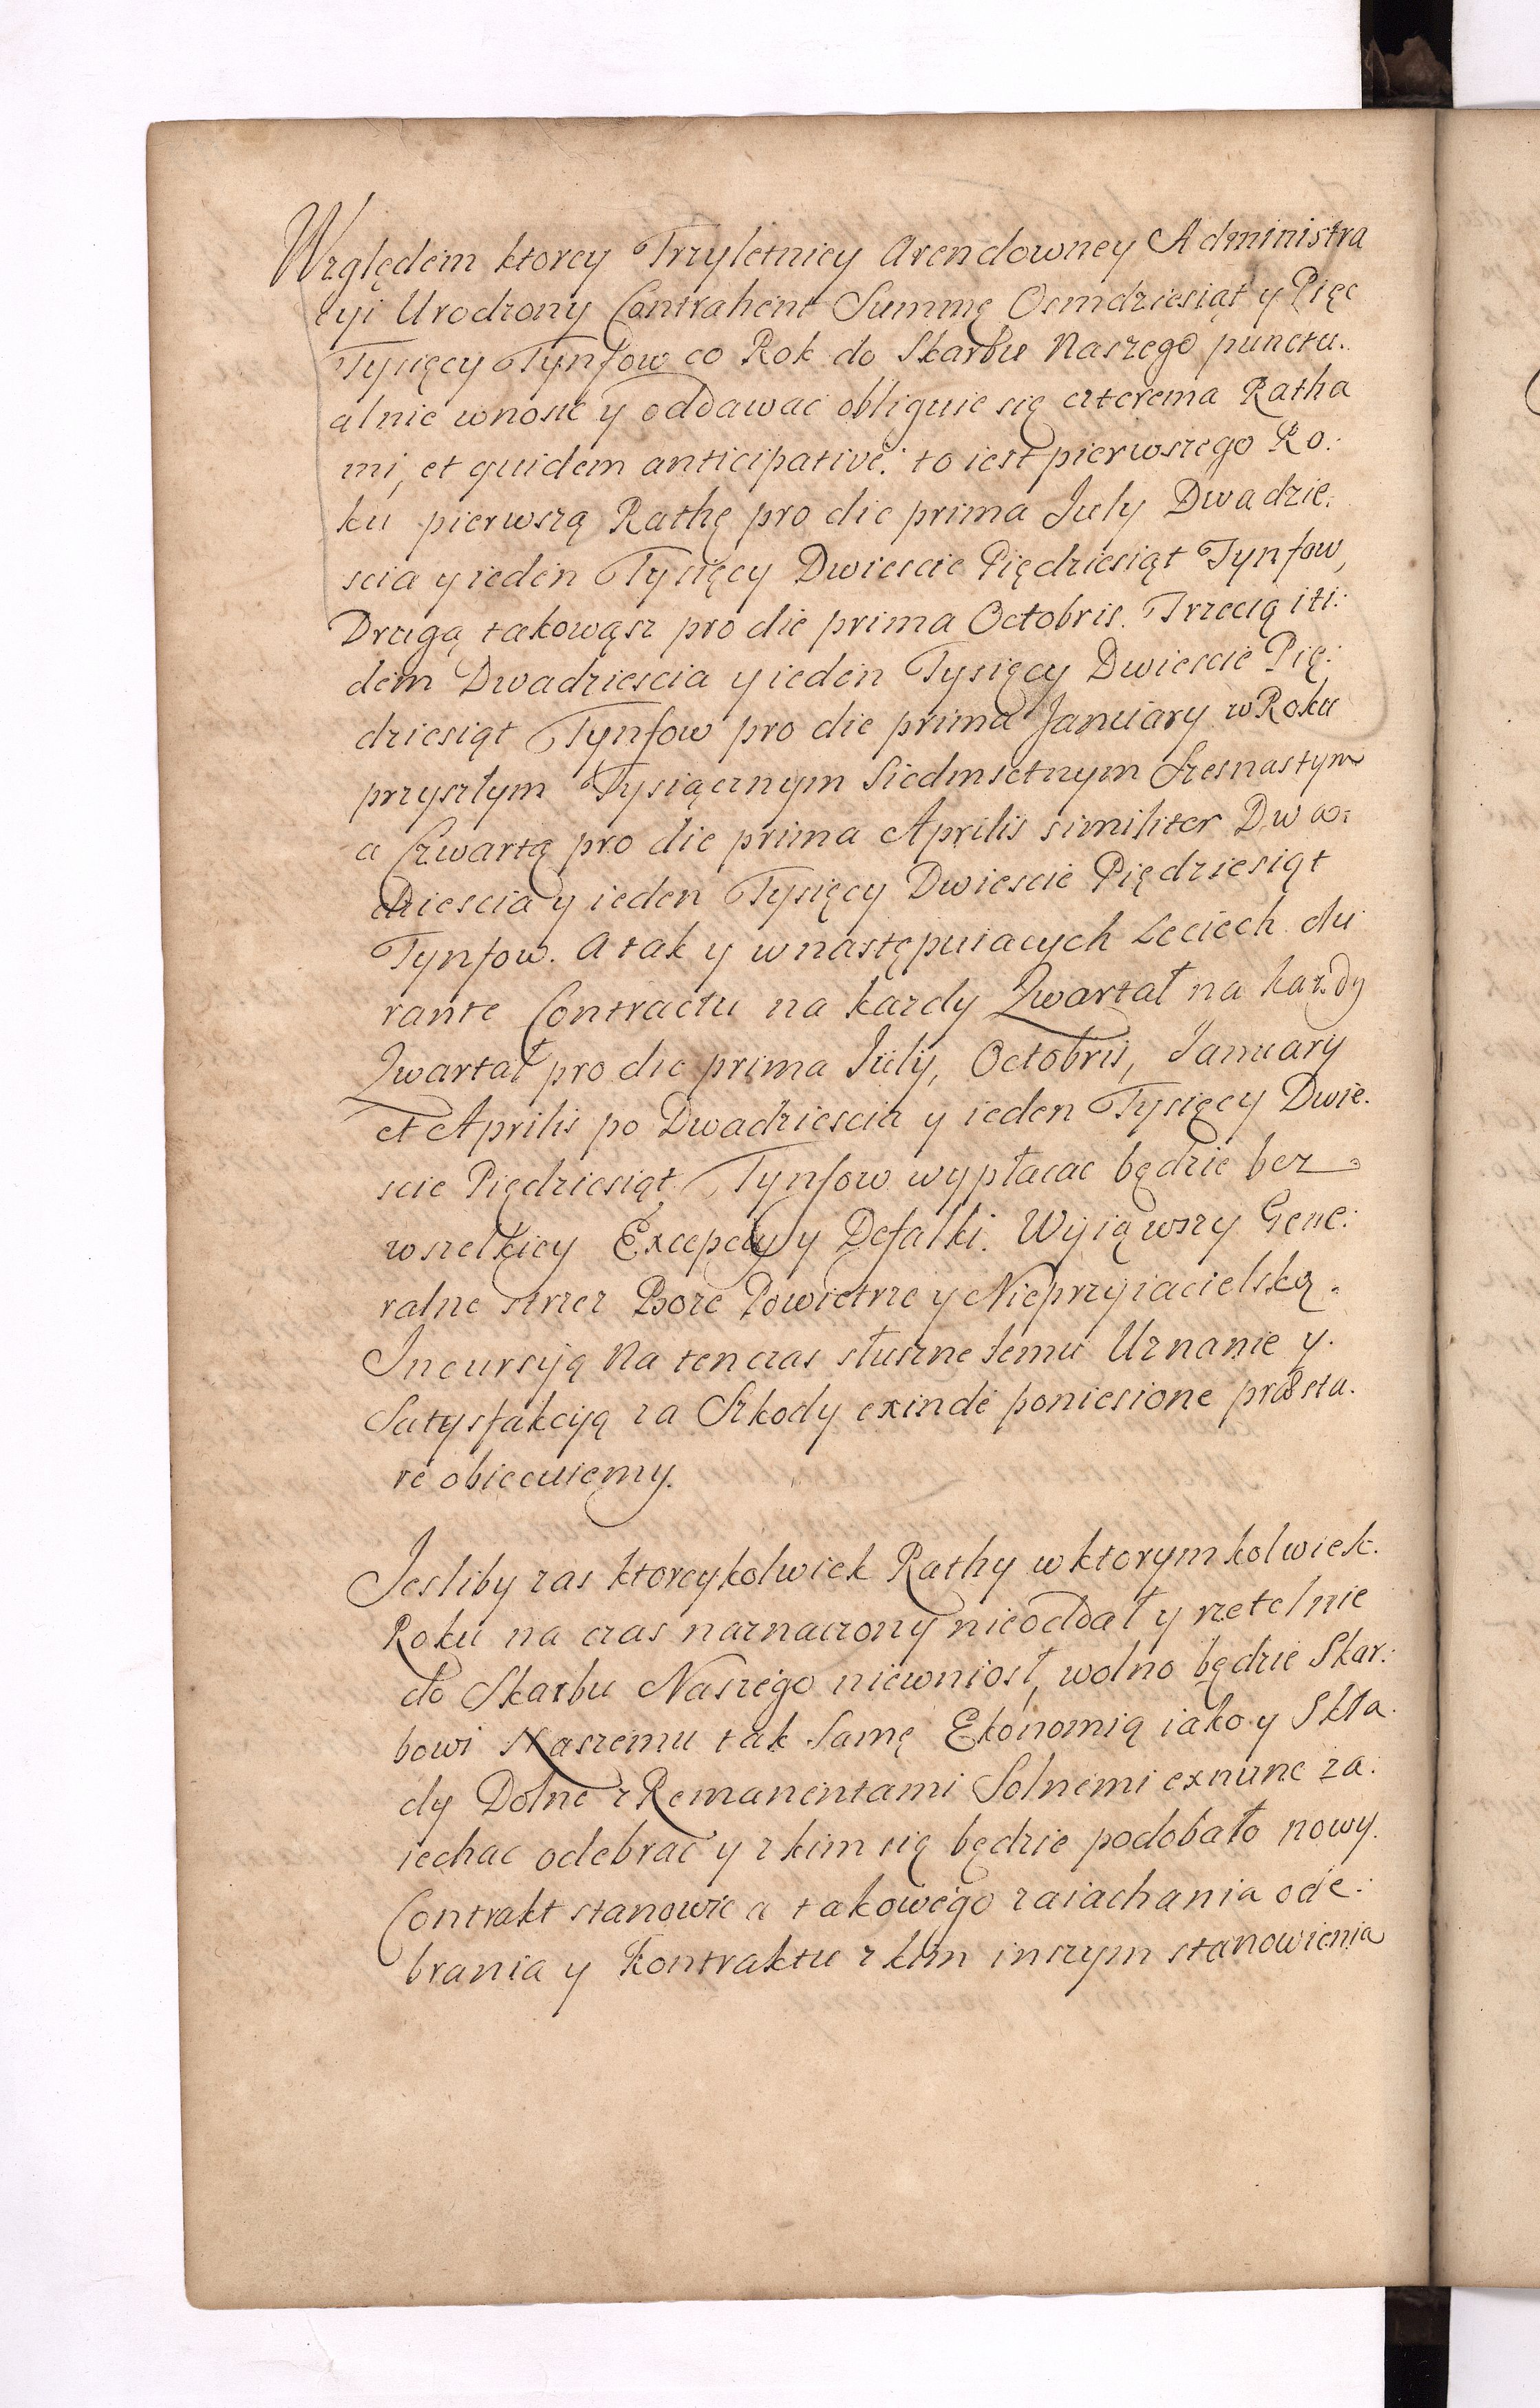 Względem ktorey Trzyletniey Arendowney Administra
cyi Urodzony Contrahent Summę Osmdziesiąt y Pięc
Tysięcy Tynfow co Rok do Skarbu Naszego punctu.
alnie wnosic y oddawac obliguie się czterema Ratha
mi, et quidem anticipative: to iest pierwszego Ro:
ku pierwszą Rathę pro die prima July Dwadzie:
scia y ieden Tysięcy Dwiescie Pięcdziesiąt Tynfow,
Drugą takowąsz pro die prima Octobris. Trzecią iti:
dem Dwadziescia y ieden Tysięcy Dwiescie Pię:
dziesiąt Tynfow pro die prima January w Roku
przyszłym Tysiącznym Siedmsetnym Szesnastym
a Czwartą pro die prima Aprilis similiter Dwa:
dziescia y ieden Tysięcy Dwiescie Piędziesiąt
Tynfow. A tak y w następuiacych Leciech du
rante Contractu na kazdy Qwartał na kazdy
Qwartał pro die prima July, Octobris, January
et Aprilis po Dwadziescia y ieden Tysięcy Dwie.
scie Pięcdziesiąt Tynfow wypłacac będzie bez
wszelkiey Excepcyi y Defalki. Wyiąwszy Gene:
ralne strzez Boze Powietrze y Nieprzyiacielską.
Incursyją Na tenczas słuszne temu Uznanie y.
Satysfakcyją za Szkody exinde poniesione præsta.
re obiecuiemy.
Jesliby zas ktoreykolwiek Rathy w ktorymkolwiek.
Roku na czas naznaczony nieoddał y rzetelnie
do Skarbu Naszego niewniosł, wolno będzie Skar:
bowi Naszemu tak Samę Ekonomią iako y Skła
dy Dolne z Remanentami Solnemi exnunc za:
iechac odebrac y z kim się będzie podobało nowy.
Contrakt stanowic a takowego zaiachania ode:
brania y Kontraktu z kim inszym stanowienia